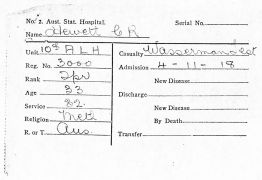 No. 2. Aust. Stat. Hospital. Serial No.
Name Hewett C R
Unit 10th A L H Casualty Wassermann test
Reg. No. 3000 Admission 4-11-18
Rank Tpr New Disease
Age 33 Discharge
Service 82. New Disease
Religion Meth By Death
R. or T. Aus. Transfer